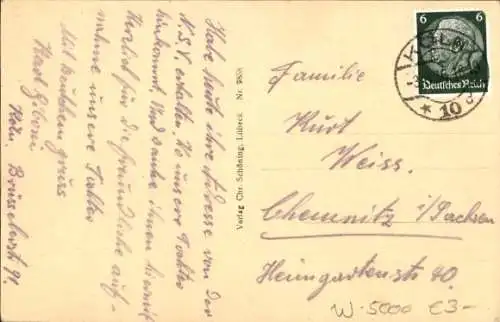 Habe heute ihre Adresse von der
N.S.V. erhalten. Wo unsere Tochter
hinkommt. Und danke ihnen hiermit
Herzlich für die freundliche auf-
nahme unsere Tochter
Mit deutschem gruss
Karl
Köln. Brüsselerstr 91.
Verlag Chr. Schöning, Lübeck. Nr.
6 6
Deutsches Reich
KÖLN
* 10
Familie
Kurt
Weiss.
Chemnitz i/Sachsen
Heimgartenstr 40.
W-5000 €3-